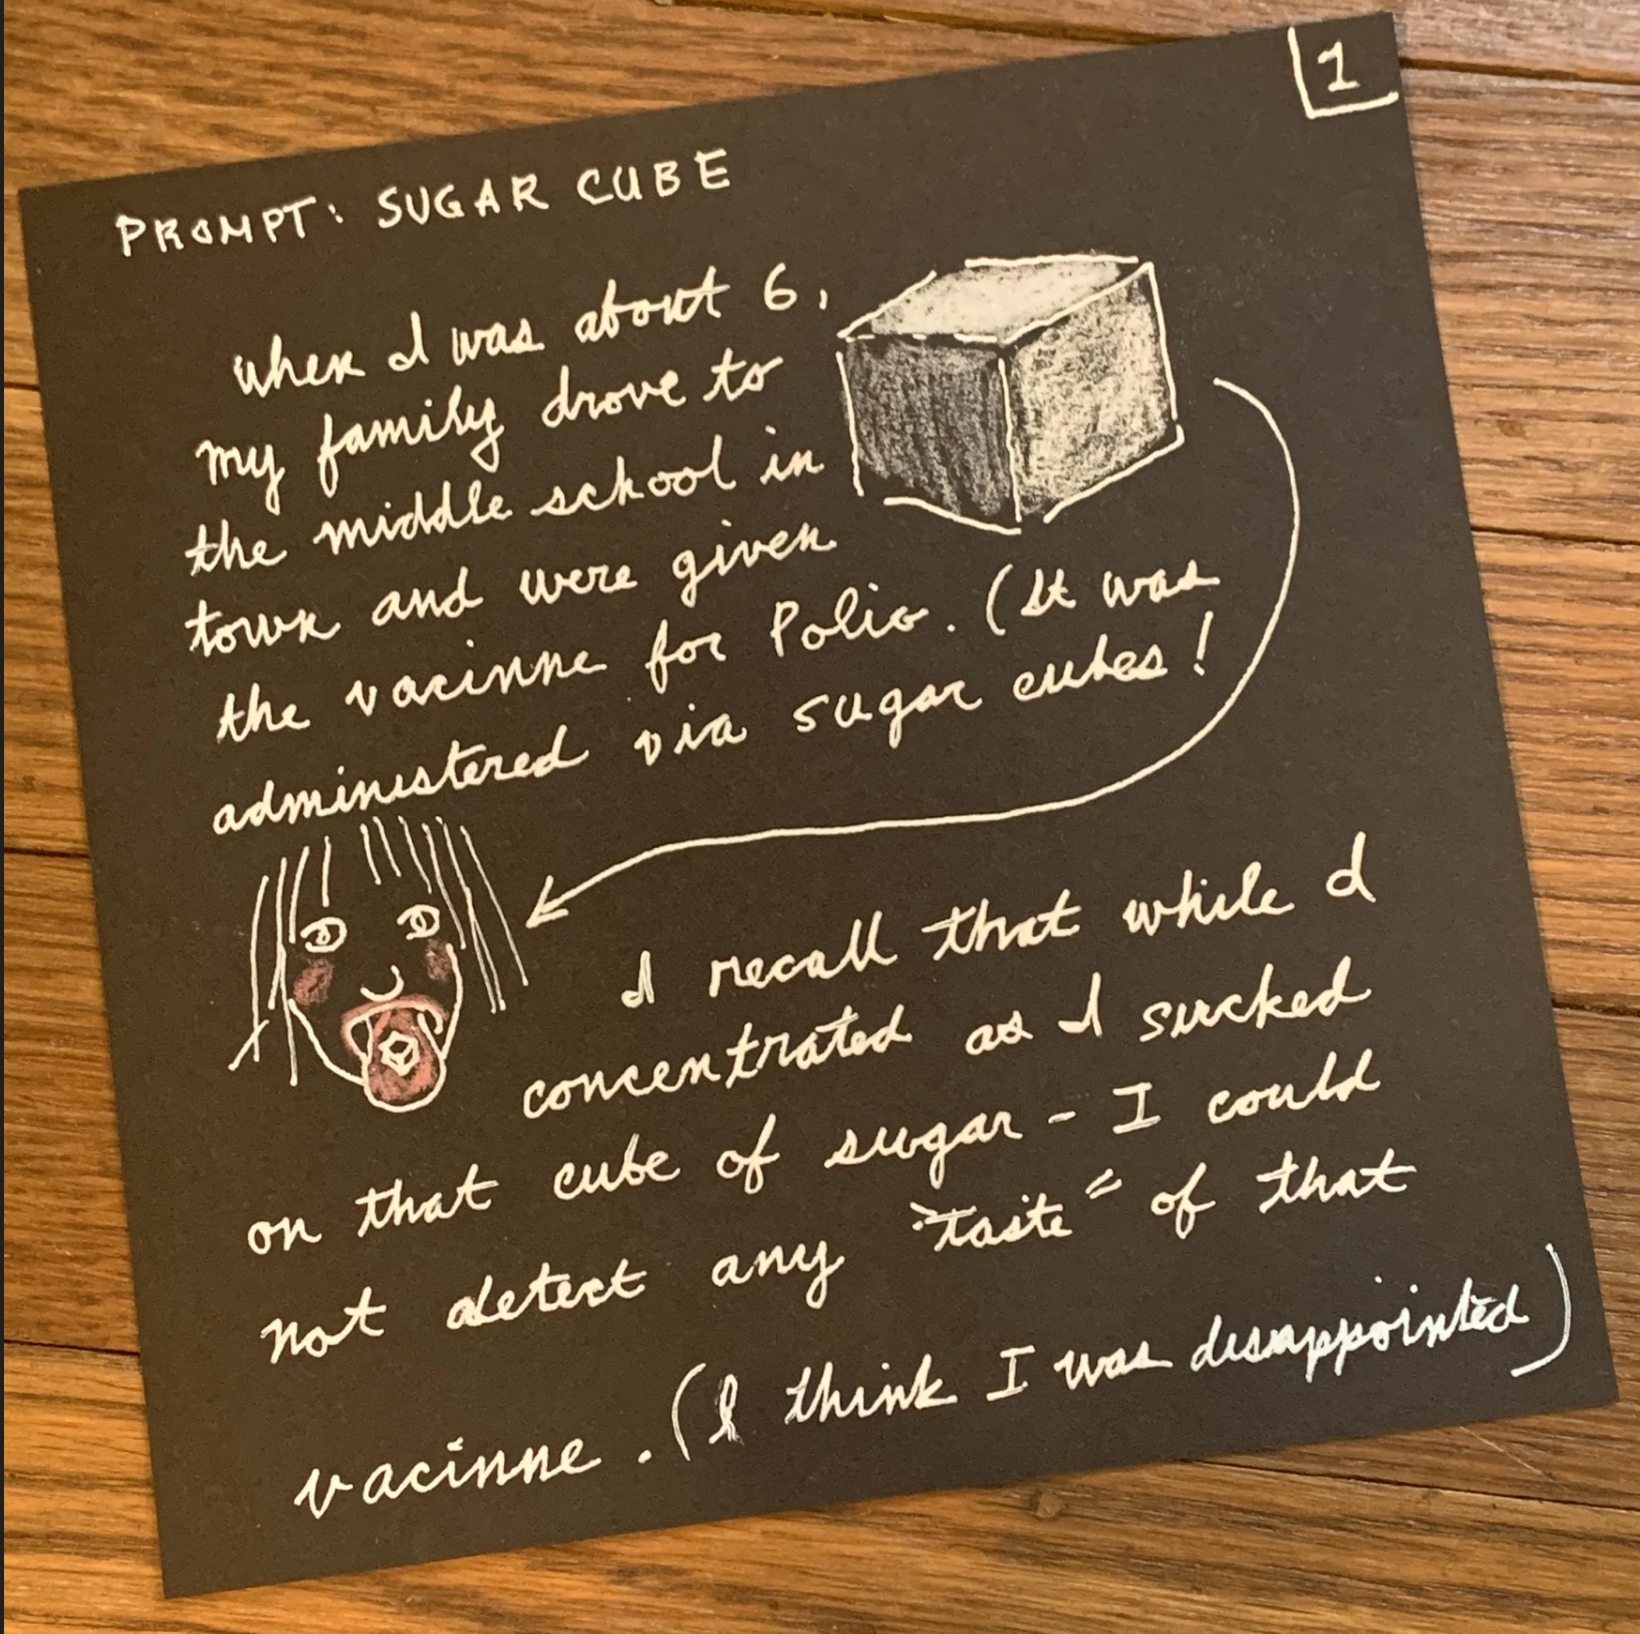 1
PROMPT: SUGAR CUBE
when I was about 6,
my family drove to
the middle school in
town and were given
the vacinne for Polio. (It was
administered via sugar cubes!
I recall that while I
concentrated as I sucked
on that cube of sugar - I could
not detect any "taste" of that
vacinne. (I think I was disappointed)